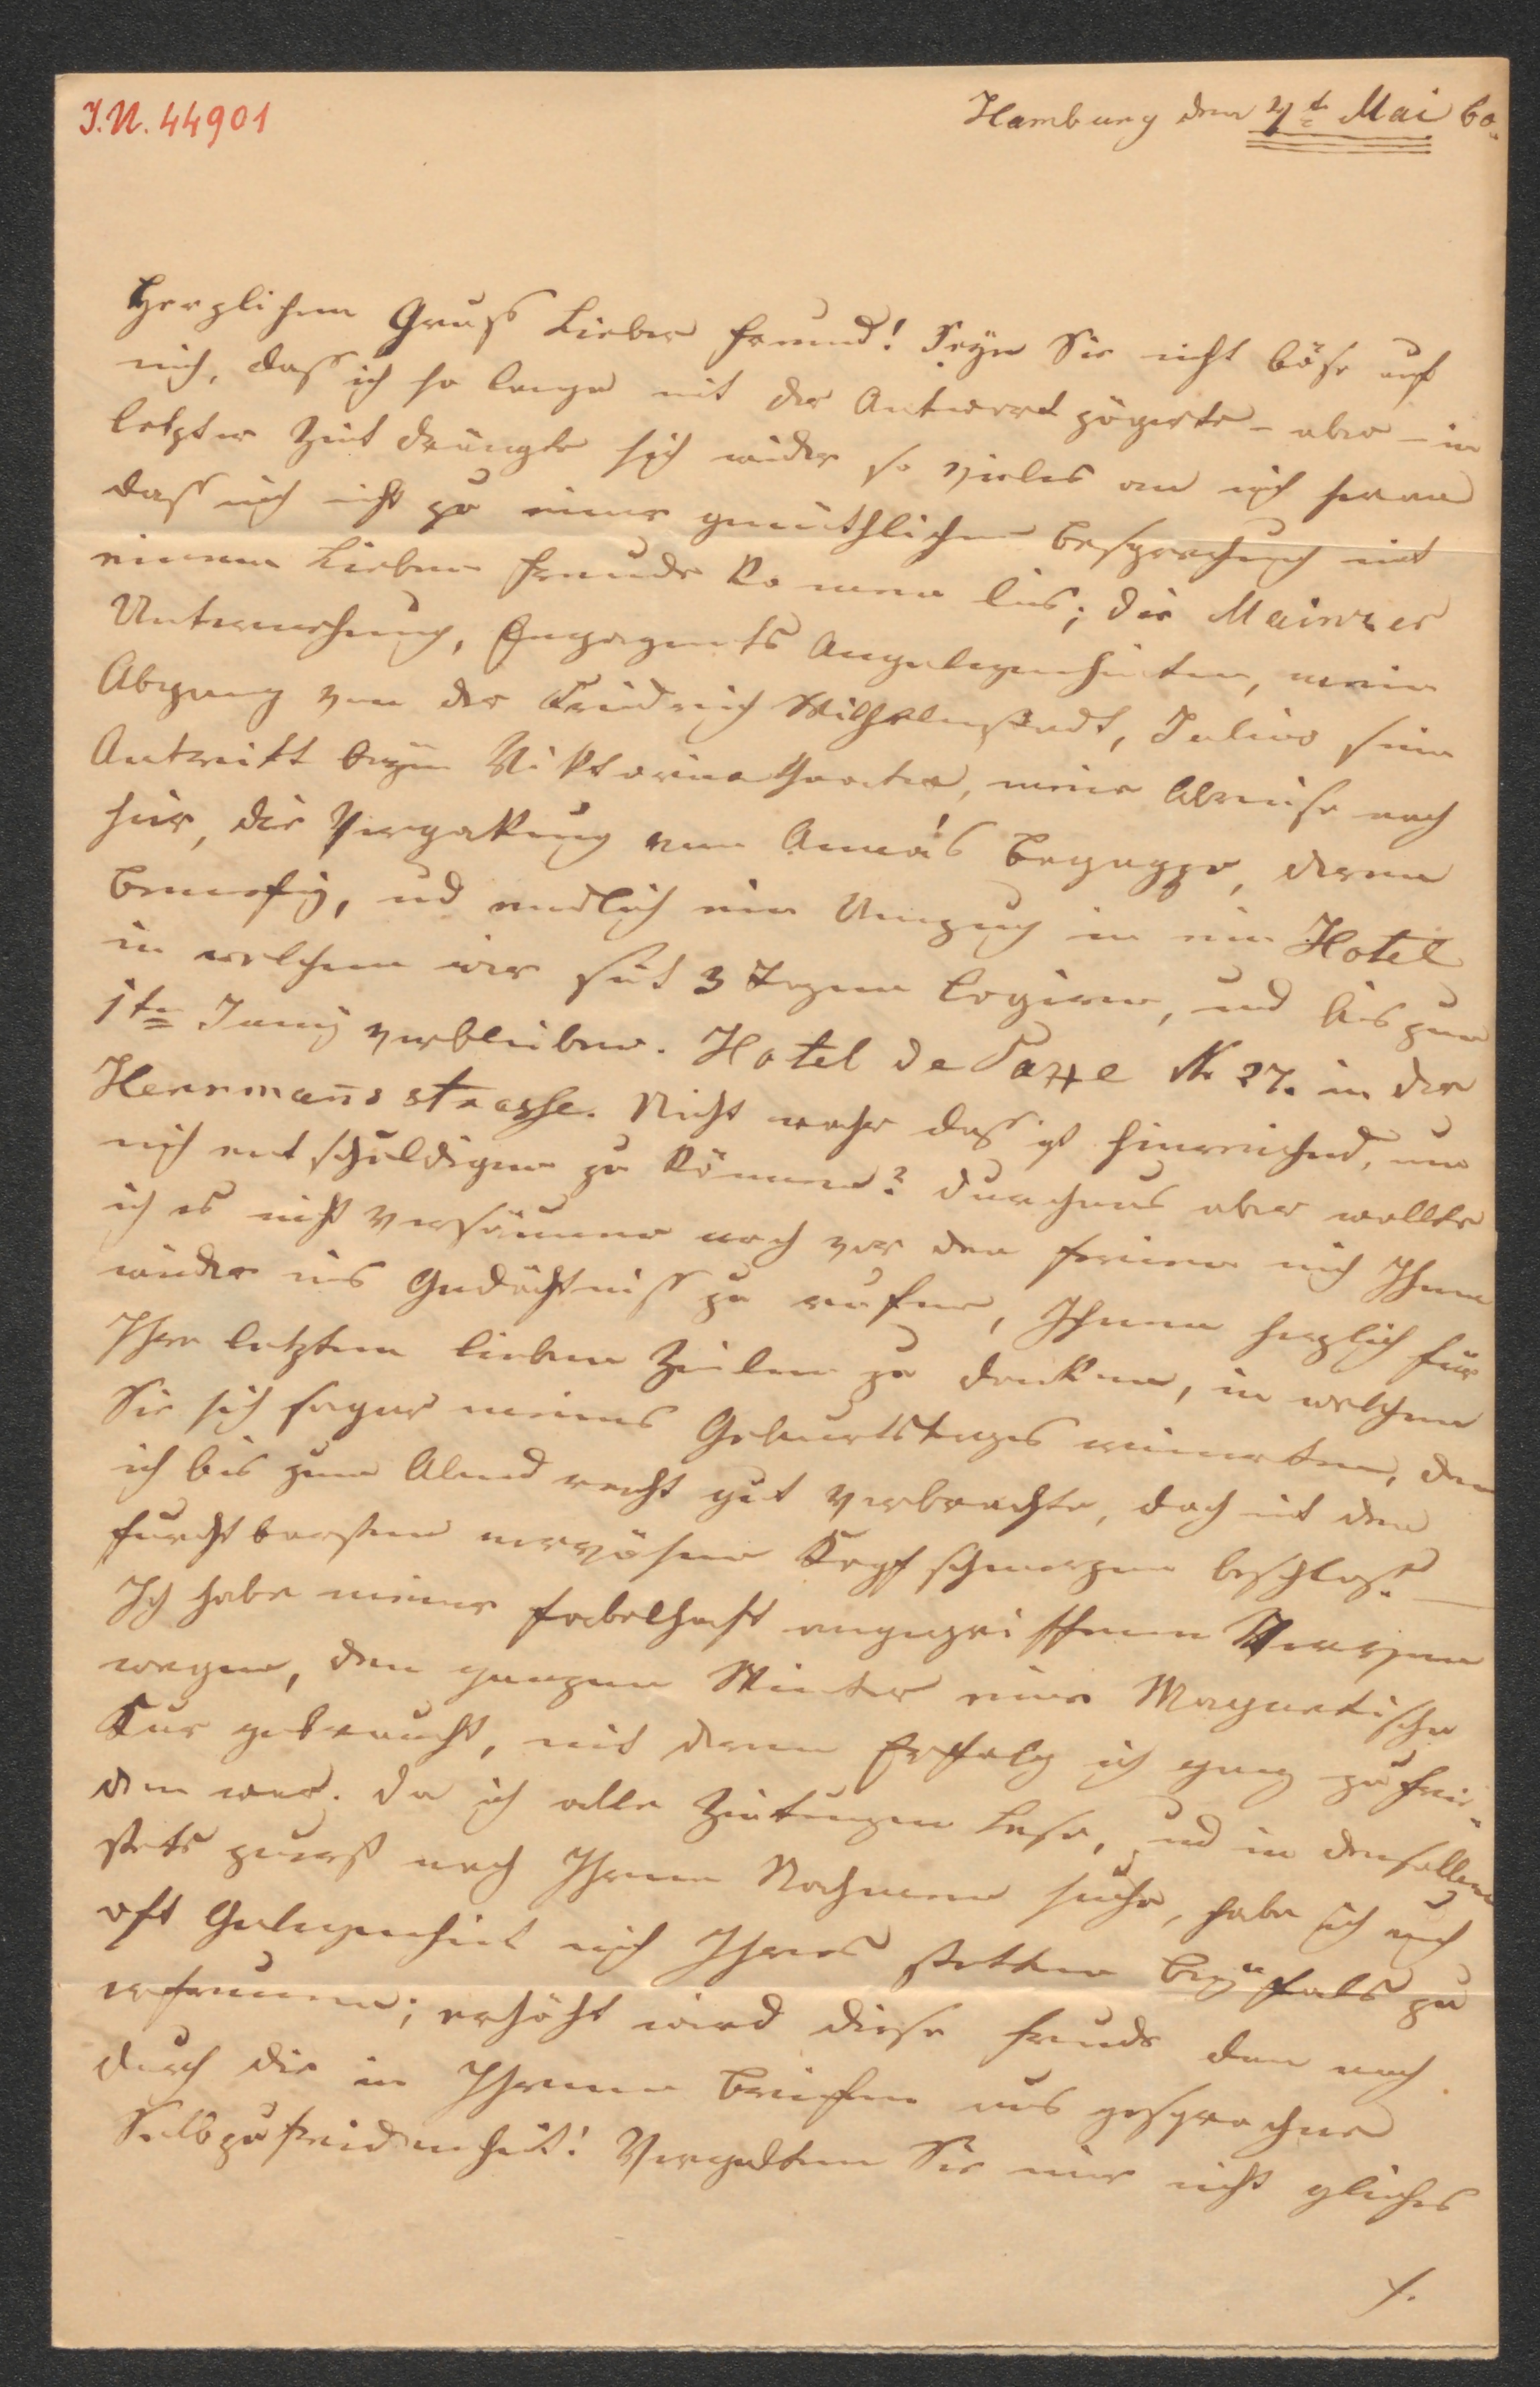 I.N. 44901
Hamburg den 4t. Mai 60.
Herzlichen Gruss Lieber Freund! Seÿn Sie nicht böse auf
mich, dass ich so lange mit der Antwort zögerte - aber - in
letzter Zeit drängte sich wieder so vieles an mich heran
dass mich nicht zu einer gemüthlichen Besprechung mit
einem Lieben Freunde kommen lies; die Mainzer
Unternehmung, Engagements Angelegenheiten, mein
Abgang von der Friedrich Wilhelmstadt, Julius sein
Antritt beÿm Viktoria Theater, meine Abreise nach
hier, die Verpakung von Anna's Bagagge, deren
Benefiz, und endlich ein Umzug in ein Hotel
in welchem wir seit 3 Tagen logieren, und bis zum
1ten Junÿ verbleiben. Hotel de No 27. in der
Herrmanns strasse. Nicht wahr dass ist hinreichend, um
mich entschuldigen zu können? durchaus aber wollte
ich es nicht versäumen noch vor den Ferien mich Ihnen
wieder ins Gedächtniss zu rufen, Ihnen herzlich für
Ihre letzten lieben Zeilen zu danken, in welchen
Sie sich sogar meines Geburtstages erinnerten, den
ich bis zum Abend recht gut verbrachte, doch mit den
furchtbarsten nervösen Kopfschmerzen beschloss. —
Ich habe meiner fabelhaft angegriffenen Nerven
wegen, den ganzen Winter eine Magnetische
Kur gebraucht, mit deren Erfolg ich ganz zufrie-
den war. Da ich alle Zeitungen lese, und in denselben
stets zuerst nach Ihrem Nahmen suche, habe ich auch
oft Gelegenheit mich Ihres steten Beÿfals zu
erfreuen; erhöht wird diese Freude dan noch
durch die in Ihrem Briefen aus gesprochene
Selbzufriedenheit! Vergelten Sie mir nicht gleiches